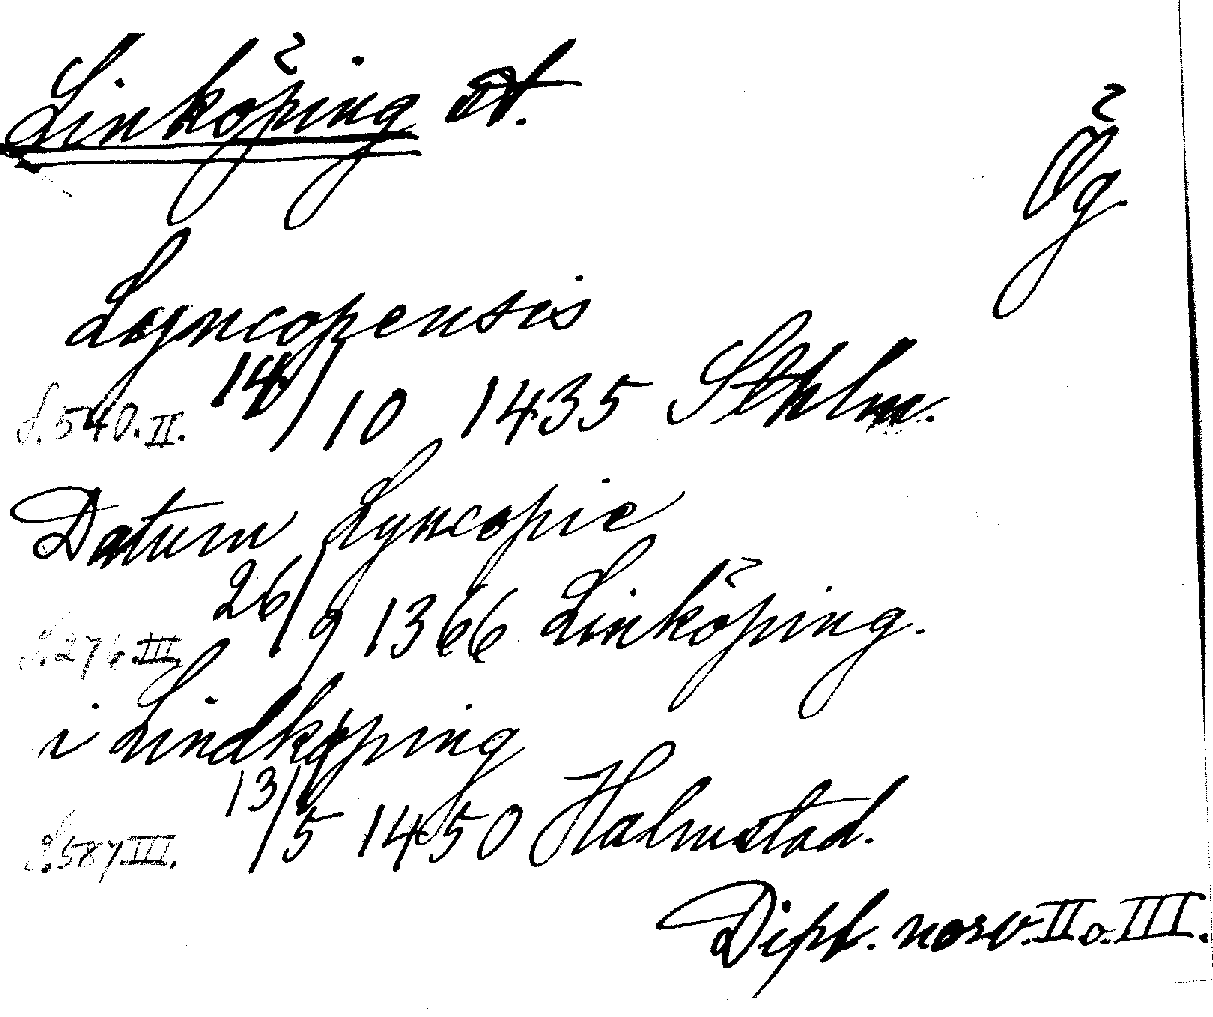 Linköping st.
Ög
Lyncopensis
S. 540. II. 14/10 1435 Sthlm.
Datum Lyncopie
S. 276. III. 26/9 1366 Linköping.
i Lindköping
S. 587 III. 13/5 1450 Halmstad.
Dipl. norv. II o. III.